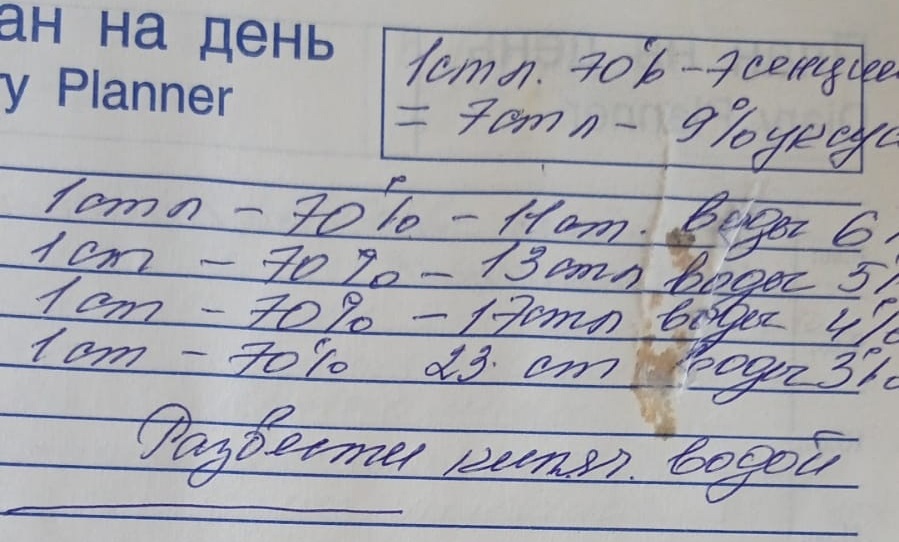 ан на день
y Planner
1 ст л. 70% - 7 эсенции
= 7 ст л - 9% уксус
1 ст л - 70% - 11 ст. воды 6%
1 ст - 70% - 13 ст л воды 5%
1 ст - 70% - 17 ст л воды 4%
1 ст - 70% 23. ст воды 3%
Развести кипяч. водой